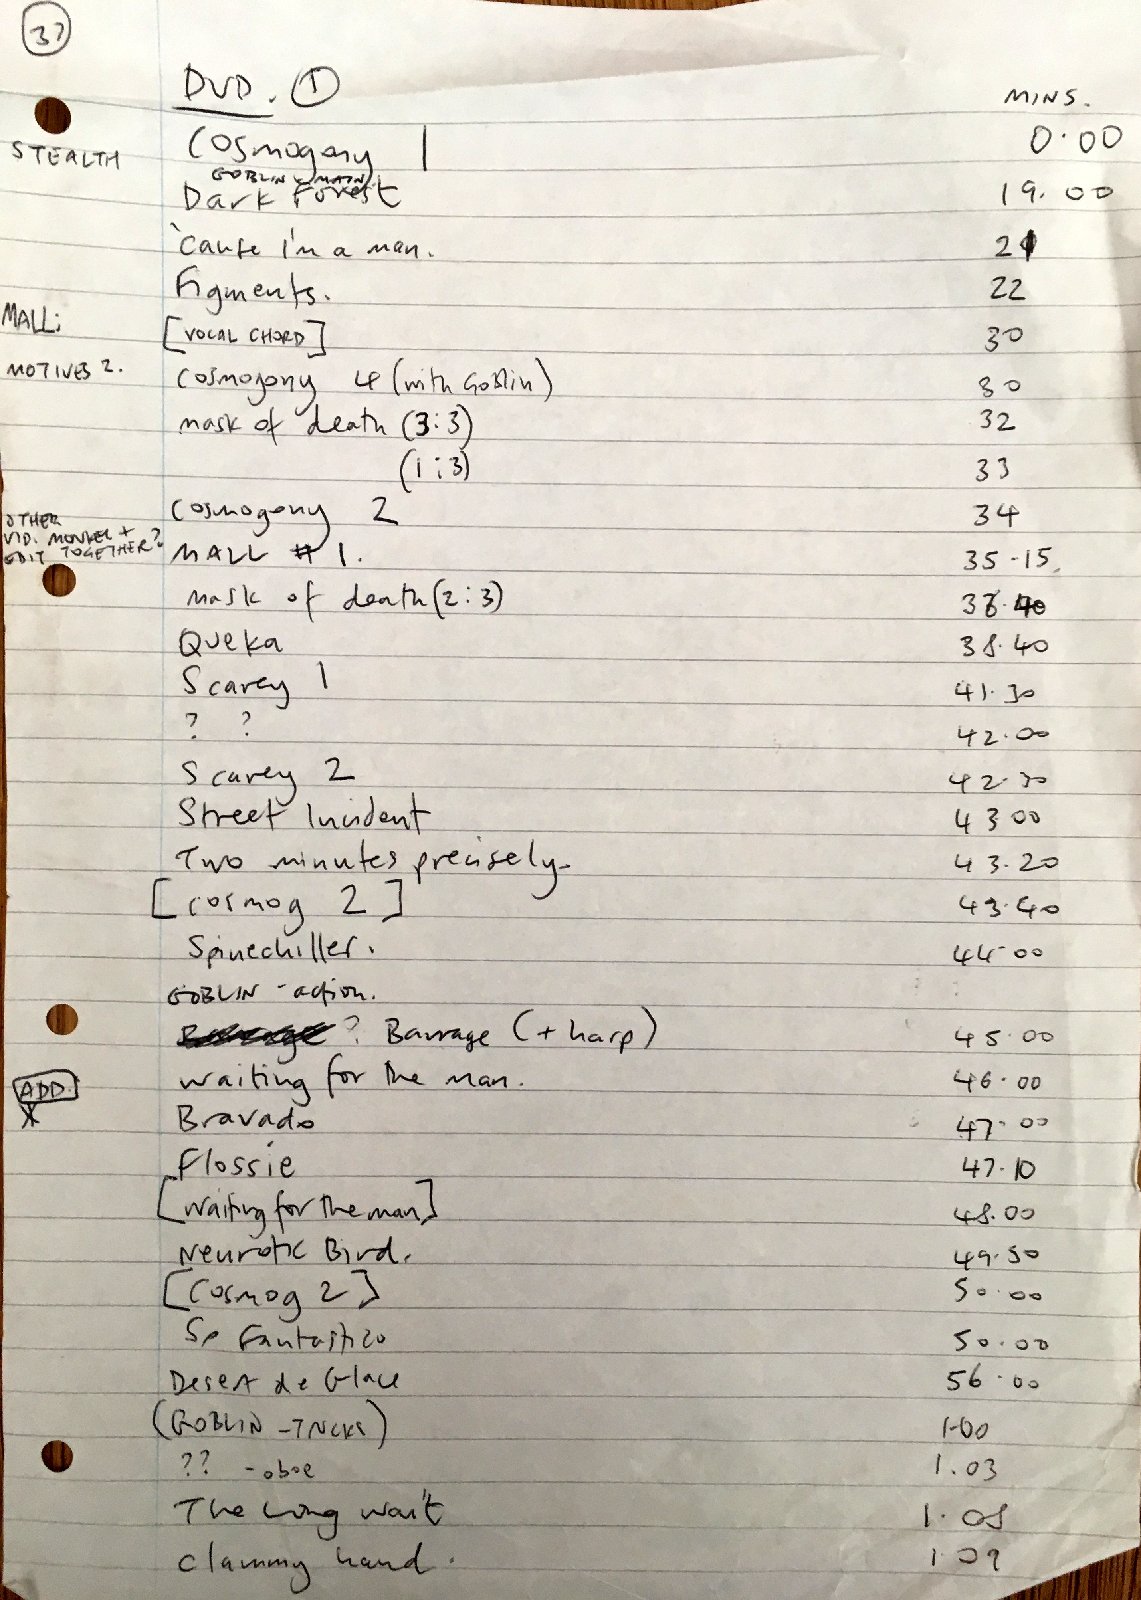 37
DVD. ①
MINS.
STEALTH Cosmogony 1 0.00
GOBLIN MAIN
Dark Forest 19.00
'cause I'm a man. 21
Figments. 22
MALL: [VOCAL CHORD] 30
MOTIVES 2. Cosmogony 4 (with Goblin) 30
mask of death (3:3) 32
(1:3) 33
Cosmogony 2 34
OTHER
VID. + EDIT TOGETHER? MALL # 1. 35.15
mask of death (2:3) 36.40
Queka 38.40
Scarey 1 41.30
? ? 42.00
Scarey 2 42.30
Street Incident 43 00
Two minutes precisely 43.20
[cosmog 2] 43.40
Spinechiller. 44.00
GOBLIN - action.
? Barrage (+ harp) 45.00
ADD X waiting for the man. 46.00
Bravado 47.00
Flossie 47.10
[waiting for the man] 48.00
Neurotic Bird. 49.50
[Cosmog 2] 50.00
Sp Fantastico 50.00
Desert de Glace 56.00
(GOBLIN - TRICKS) 1.00
?? - oboe 1.03
The Long wait 1.08
clammy hand. 1.09